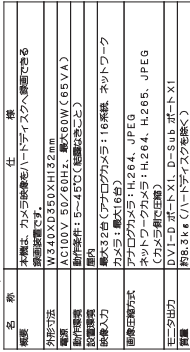 名　称　仕　様
概要　本機は、カメラ映像をハードディスクへ録画できる
録画装置です。
外形寸法　W340XD350XH132mm
電源　AC100V 50/60Hz、最大60W(65VA)
動作環境　動作条件：5~45℃(結露なきこと)
設置環境　屋内
映像入力　最大32台(アナログカメラ：16系統、ネットワーク
カメラ：最大16台)
画像圧縮方式　アナログカメラ：H.264、JPEG
ネットワークカメラ：H.264、H.265、JPEG
(カメラ側で圧縮)
モニタ出力　DVI-D ポートX1、D-Sub ポートX1
質量　約8.3kg(ハードディスクを除く)